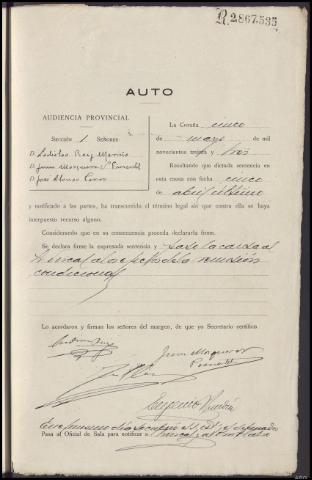 R.2867.535
AUTO
AUDIENCIA PROVINCIAL
Sección 1 Señores
D. Ladislao Roig
D. Juan Mosquera
D. José Alonso
La Coruña cinco
de mayo de mil
novecientos treinta y tres
Resultando que dictada sentencia en
esta causa con fecha cinco
de abril último
y notificado a las partes, ha transcurrido el término legal sin que contra ella se haya
interpuesto recurso alguno.
Considerando que en su consecuencia procede declararla firme.
Se declara firme la expresada sentencia y pase la causa al
Fiscal a los efectos de la remisión
condicional
Lo acordaron y firman los señores del margen, de que yo Secretario certifico.
Juan Mosquera
Eugenio
Pasa al Oficial de Sala para notificar a